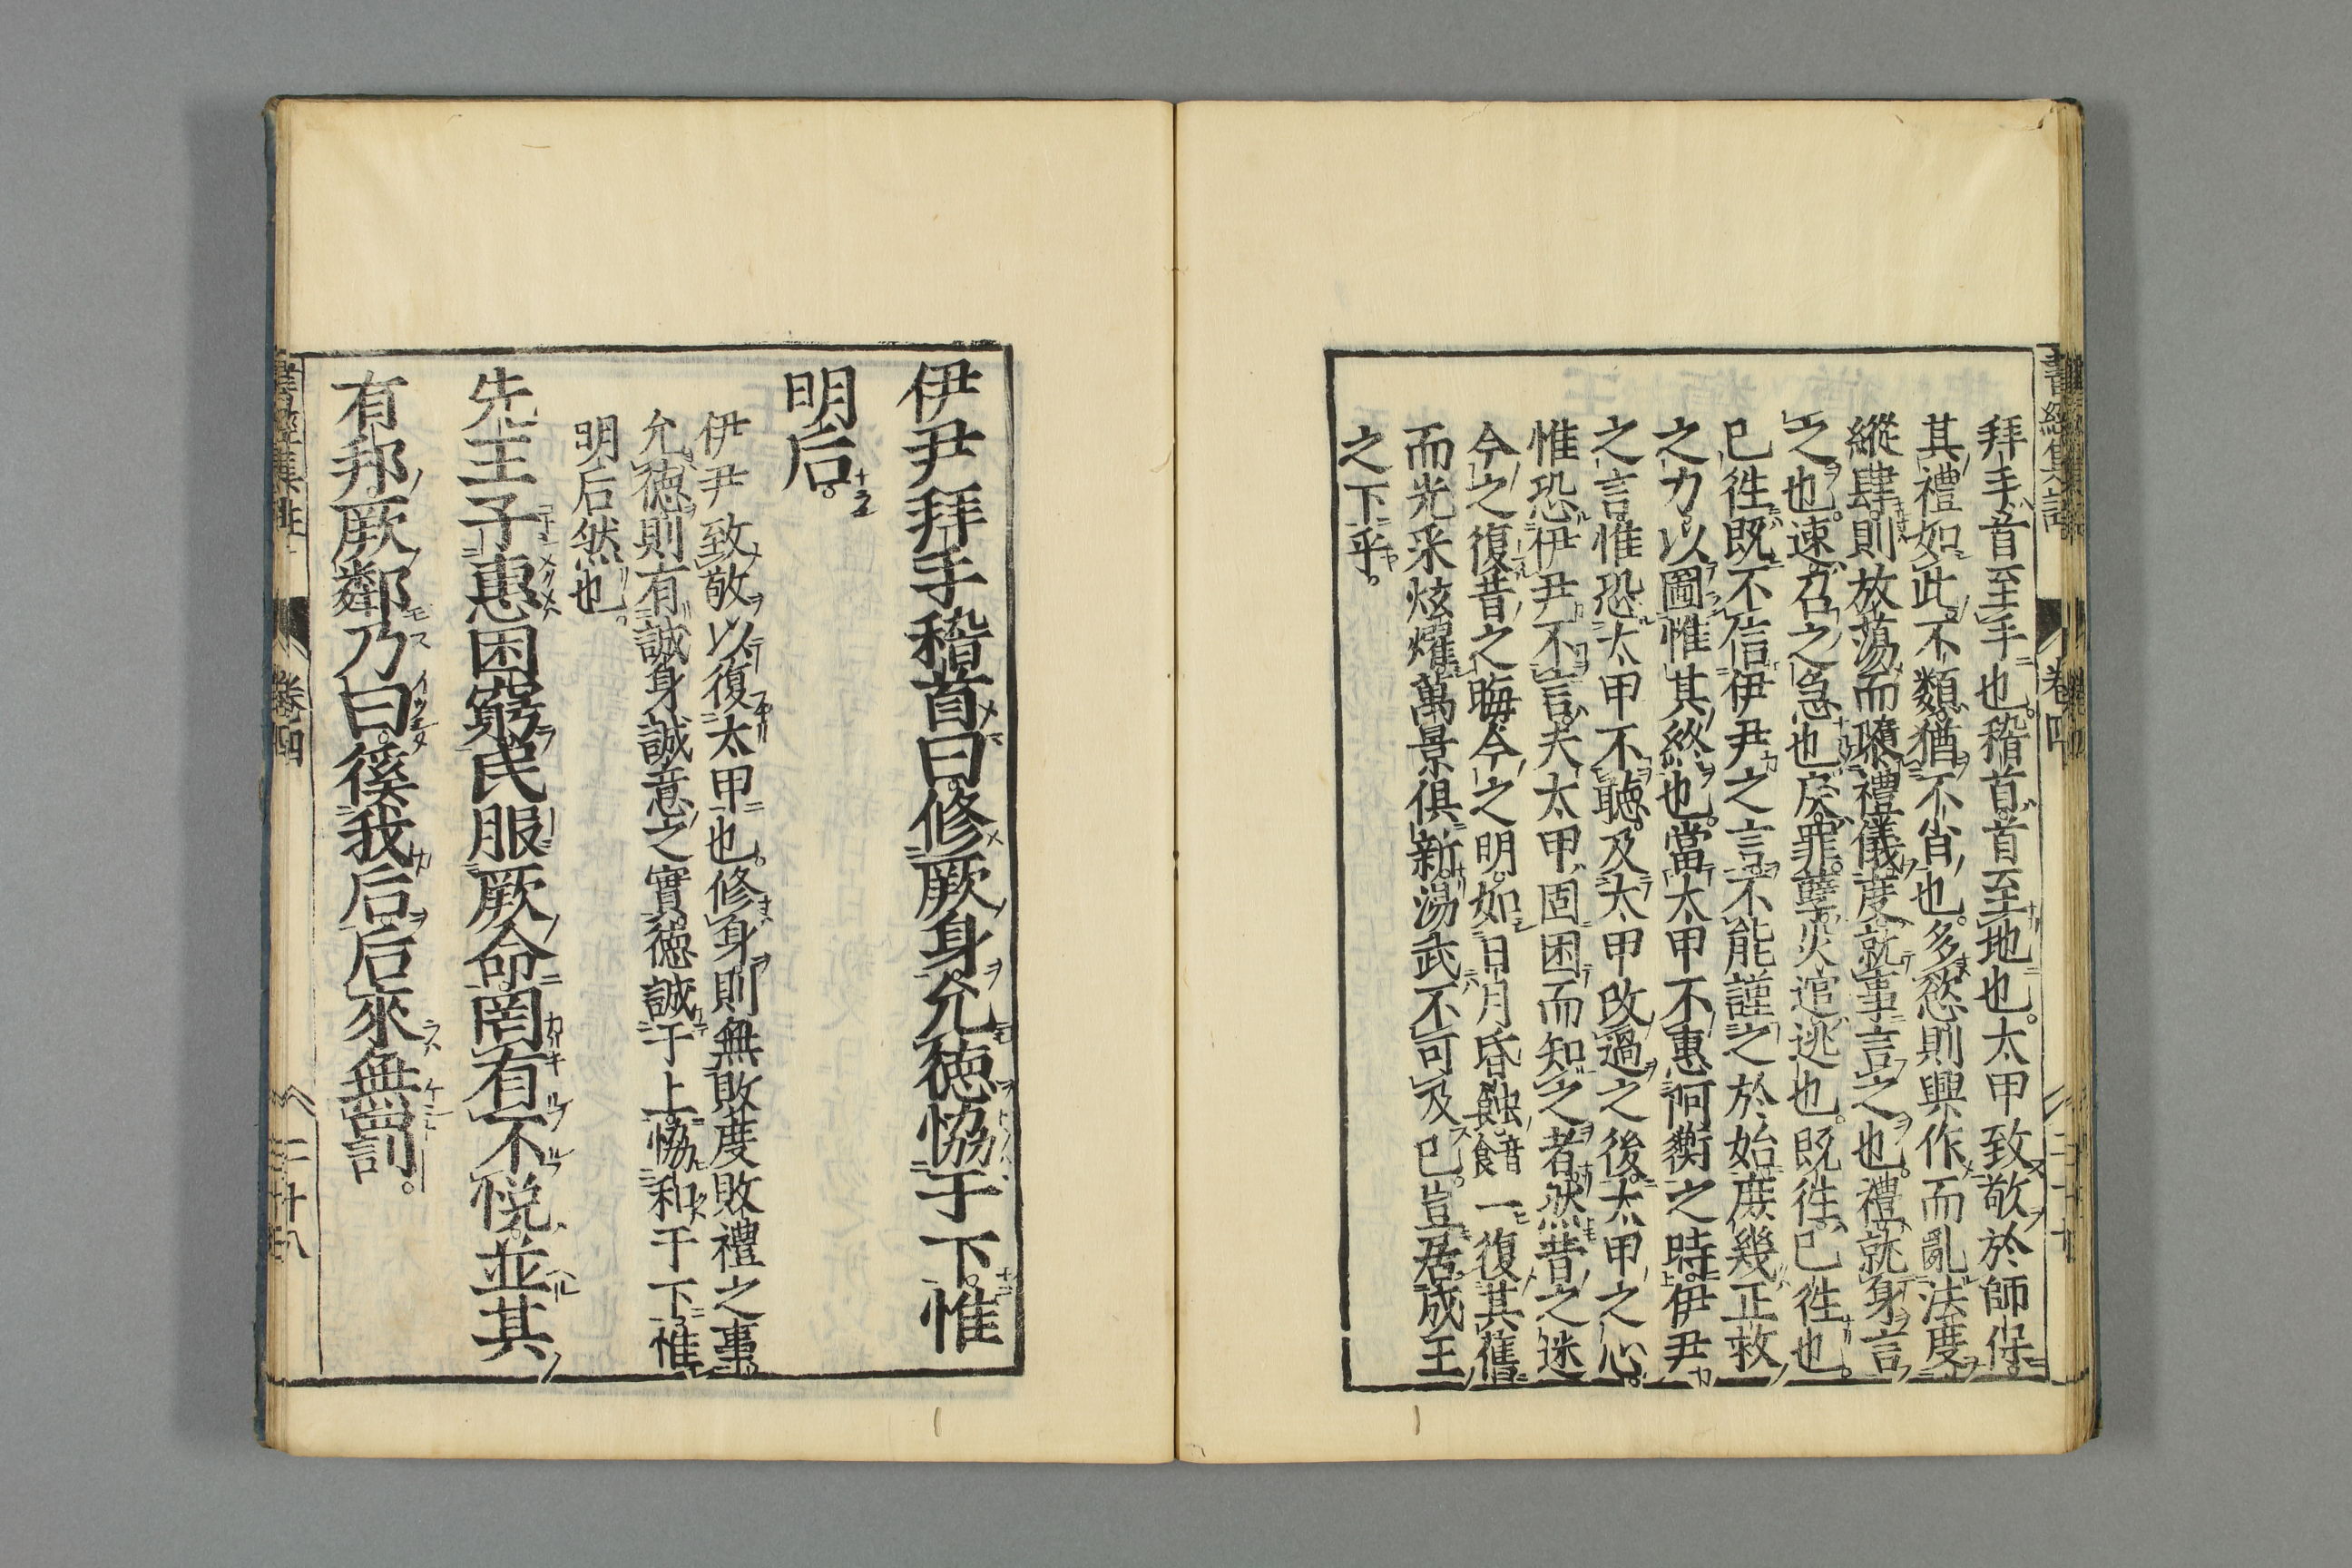 拜手首至手也稽首首至地也太甲致敬於師保
其禮如此不類猶不肖也多慾則興作而亂法度
縱肆則放蕩而隳禮儀度就事言之也禮就身言
之也速召之急也戾罪孽災逭逃也既徃已徃也
已徃既不信伊尹之言不能謹之於始庶幾正救
之力以圖惟其終也當太甲不惠阿衡之時伊尹
之言惟恐太甲不聽及太甲改過之後太甲之心
惟恐伊尹不言夫太甲固困而知之者然昔之迷
今之復昔之晦今之明如日月昏蝕音食一復其舊
而光采炫燿萬景俱新湯武不可及已豈居成王
之下乎
伊尹拜手稽首曰修厥身允德恊于下惟
明后
伊尹致敬以復太甲也修身則無敗度敗禮之事
允德則有誠身誠意之實德誠于上恊和于下惟
明后然也
先王子惠困窮民服厥命罔有不悅並其
有邦厥鄰乃曰徯我后后來無罰
書經集註 卷四 二十八